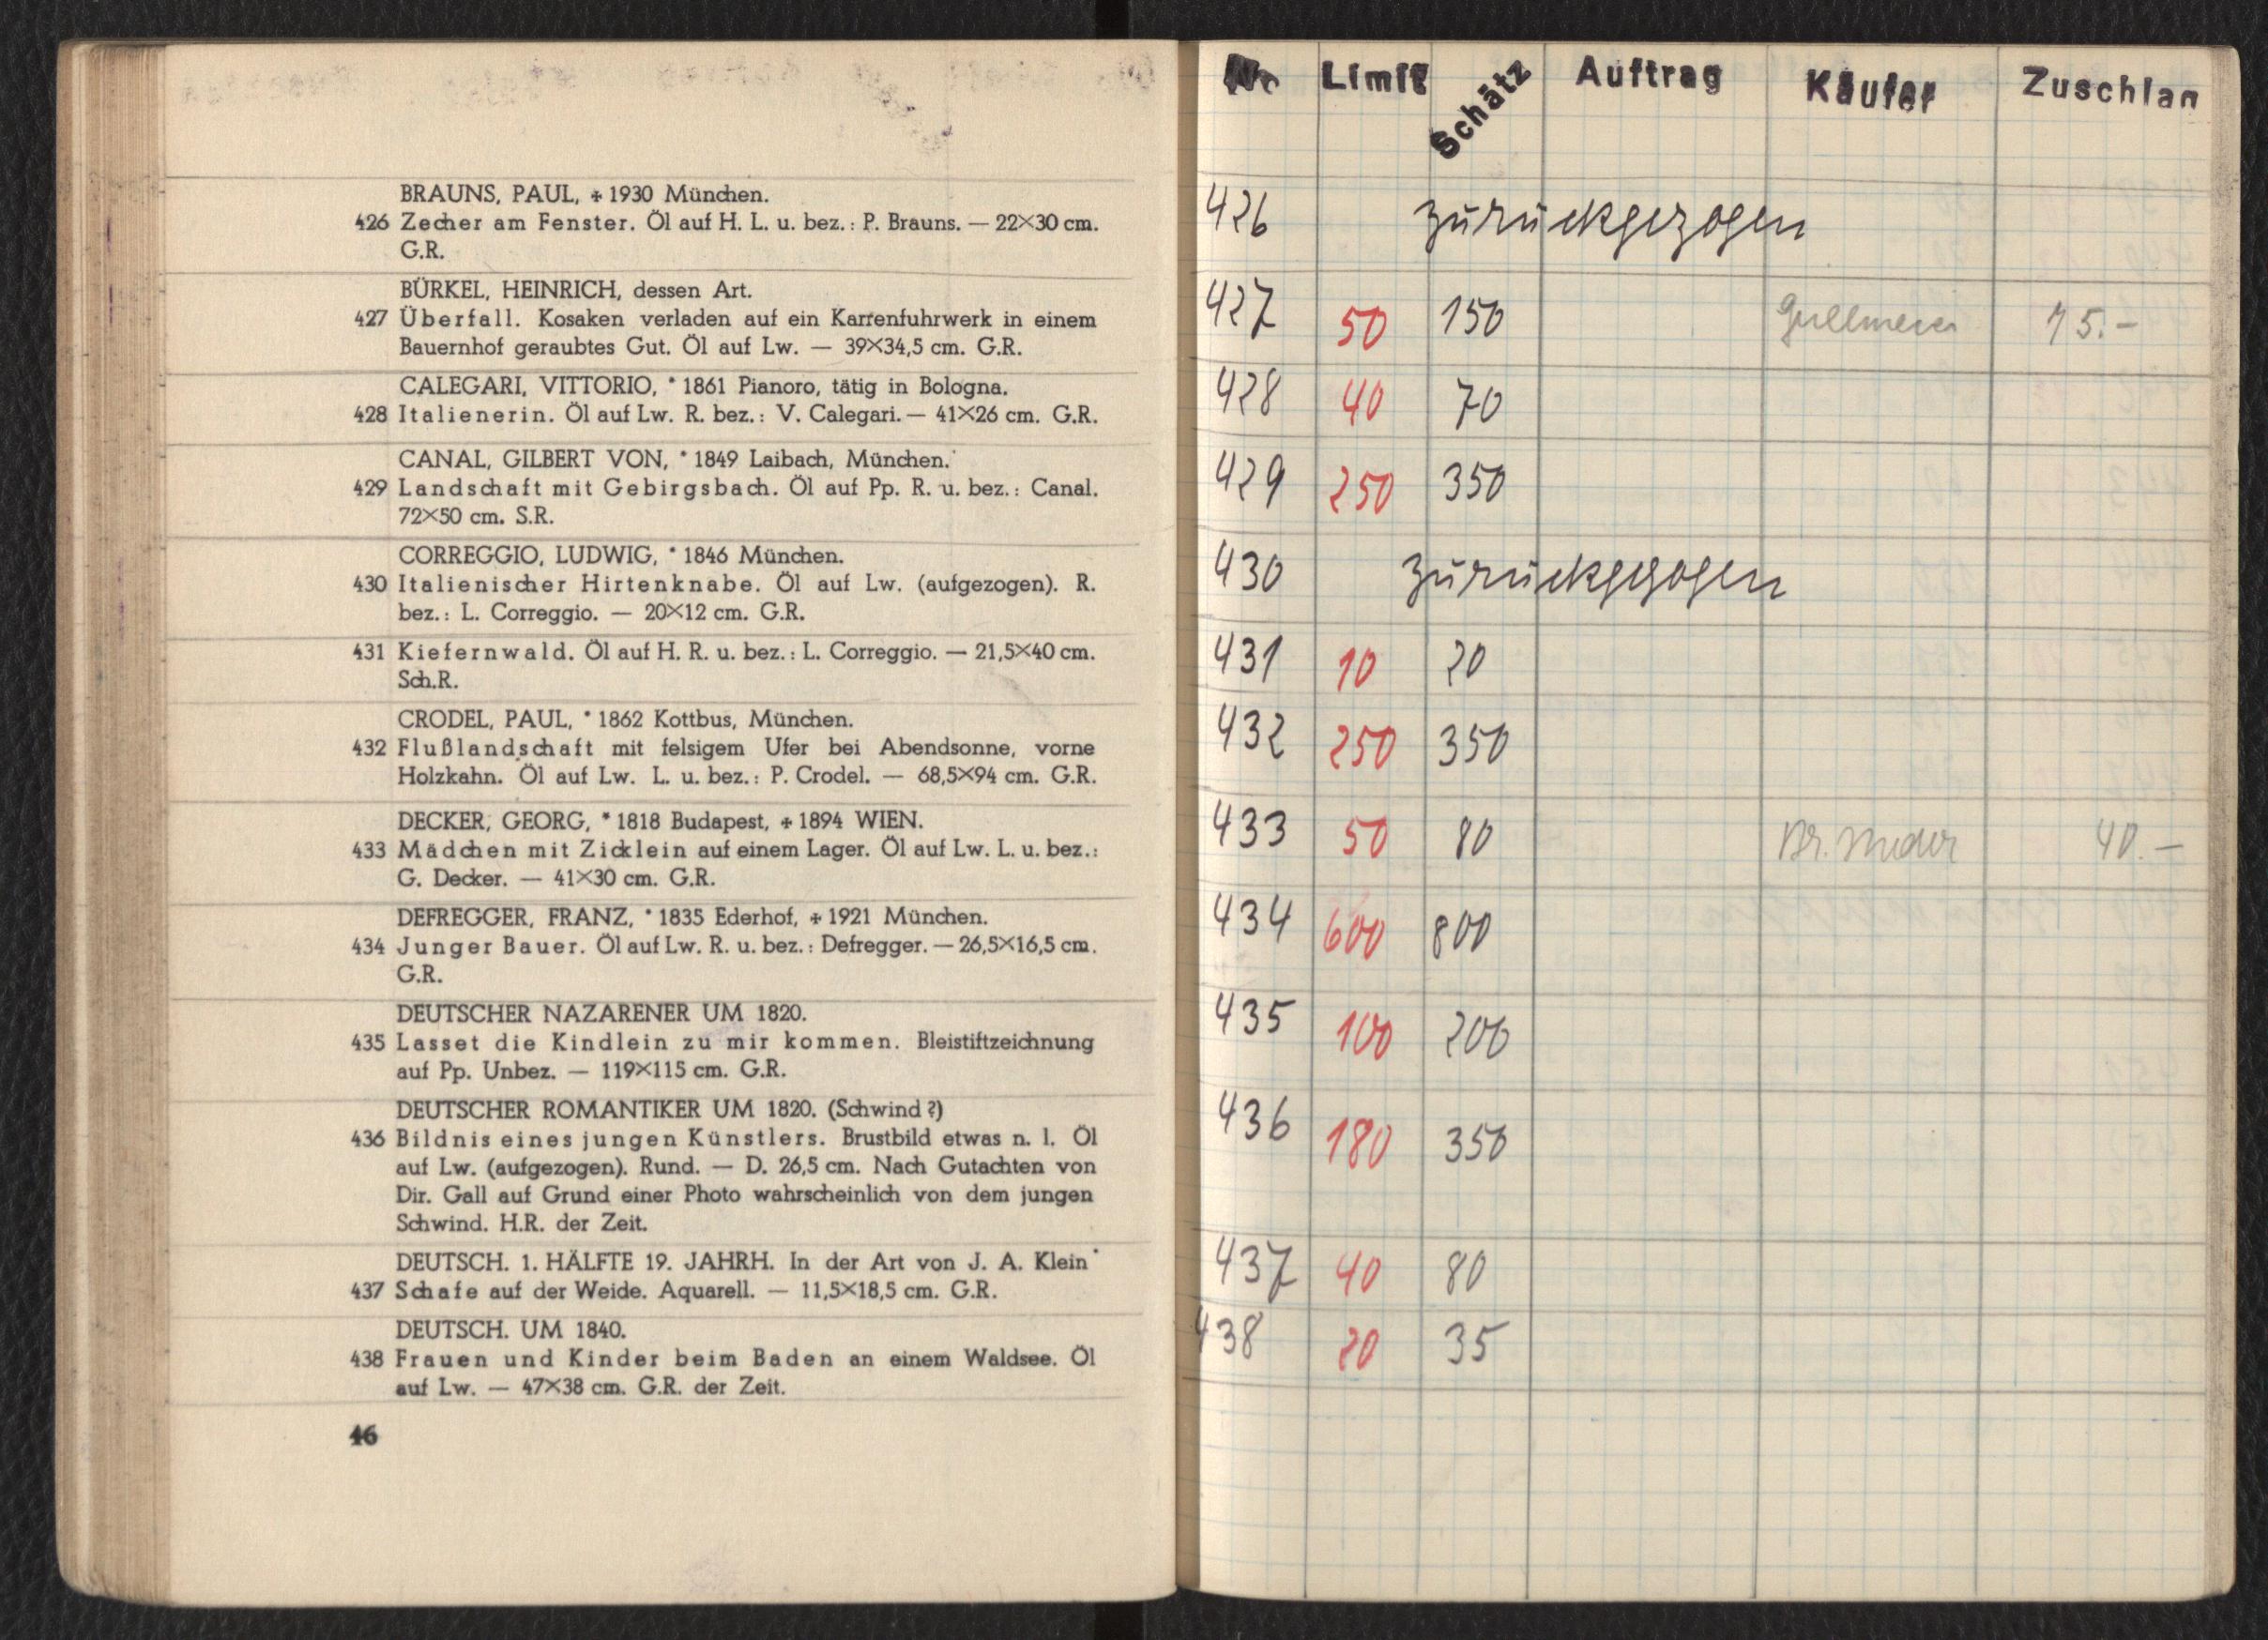 BRAUNS, PAUL, + 1930 München.
426 Zecher am Fenster. Öl auf H. L. u. bez.: P. Brauns. — 22×30 cm.
G.R.
BÜRKEL, HEINRICH, dessen Art.
427 Überfall. Kosaken verladen auf ein Karrenfuhrwerk in einem
Bauernhof geraubtes Gut. Öl auf Lw. — 39×34,5 cm. G.R.
CALEGARI, VITTORIO, * 1861 Pianoro, tätig in Bologna.
428 Italienerin. Öl auf Lw. R. bez.: V. Calegari. — 41×26 cm. G.R.
CANAL, GILBERT VON, * 1849 Laibach, München.
429 Landschaft mit Gebirgsbach. Öl auf Pp. R. u. bez.: Canal.
72×50 cm. S.R.
CORREGGIO, LUDWIG, * 1846 München.
430 Italienischer Hirtenknabe. Öl auf Lw. (aufgezogen). R.
bez.: L. Correggio. — 20×12 cm. G.R.
431 Kiefernwald. Öl auf H. R. u. bez.: L. Correggio. — 21,5×40 cm.
Sch.R.
CRODEL, PAUL, * 1862 Kottbus, München.
432 Flußlandschaft mit felsigem Ufer bei Abendsonne, vorne
Holzkahn. Öl auf Lw. L. u. bez.: P. Crodel. — 68,5×94 cm. G.R.
DECKER, GEORG, * 1818 Budapest, + 1894 WIEN.
433 Mädchen mit Zicklein auf einem Lager. Öl auf Lw. L. u. bez.:
G. Decker. — 41×30 cm. G.R.
DEFREGGER, FRANZ, * 1835 Ederhof, + 1921 München.
434 Junger Bauer. Öl auf Lw. R. u. bez.: Defregger. — 26,5×16,5 cm.
G.R.
DEUTSCHER NAZARENER UM 1820.
435 Lasset die Kindlein zu mir kommen. Bleistiftzeichnung
auf Pp. Unbez. — 119×115 cm. G.R.
DEUTSCHER ROMANTIKER UM 1820. (Schwind?)
436 Bildnis eines jungen Künstlers. Brustbild etwas n. l. Öl
auf Lw. (aufgezogen). Rund. — D. 26,5 cm. Nach Gutachten von
Dir. Gall auf Grund einer Photo wahrscheinlich von dem jungen
Schwind. H.R. der Zeit.
DEUTSCH. 1. HÄLFTE 19. JAHRH. In der Art von J. A. Klein
437 Schafe auf der Weide. Aquarell. — 11,5×18,5 cm. G.R.
DEUTSCH. UM 1840.
438 Frauen und Kinder beim Baden an einem Waldsee. Öl
auf Lw. — 47×38 cm. G.R. der Zeit.
46
Nr Limit Schätz Auftrag Käufer Zuschlag
426 zurückgezogen
427 50 150 75.-
428 40 70
429 250 350
430 zurückgezogen
431 10 20
432 250 350
433 50 80 40.-
434 600 800
435 100 200
436 180 350
437 40 80
438 20 35